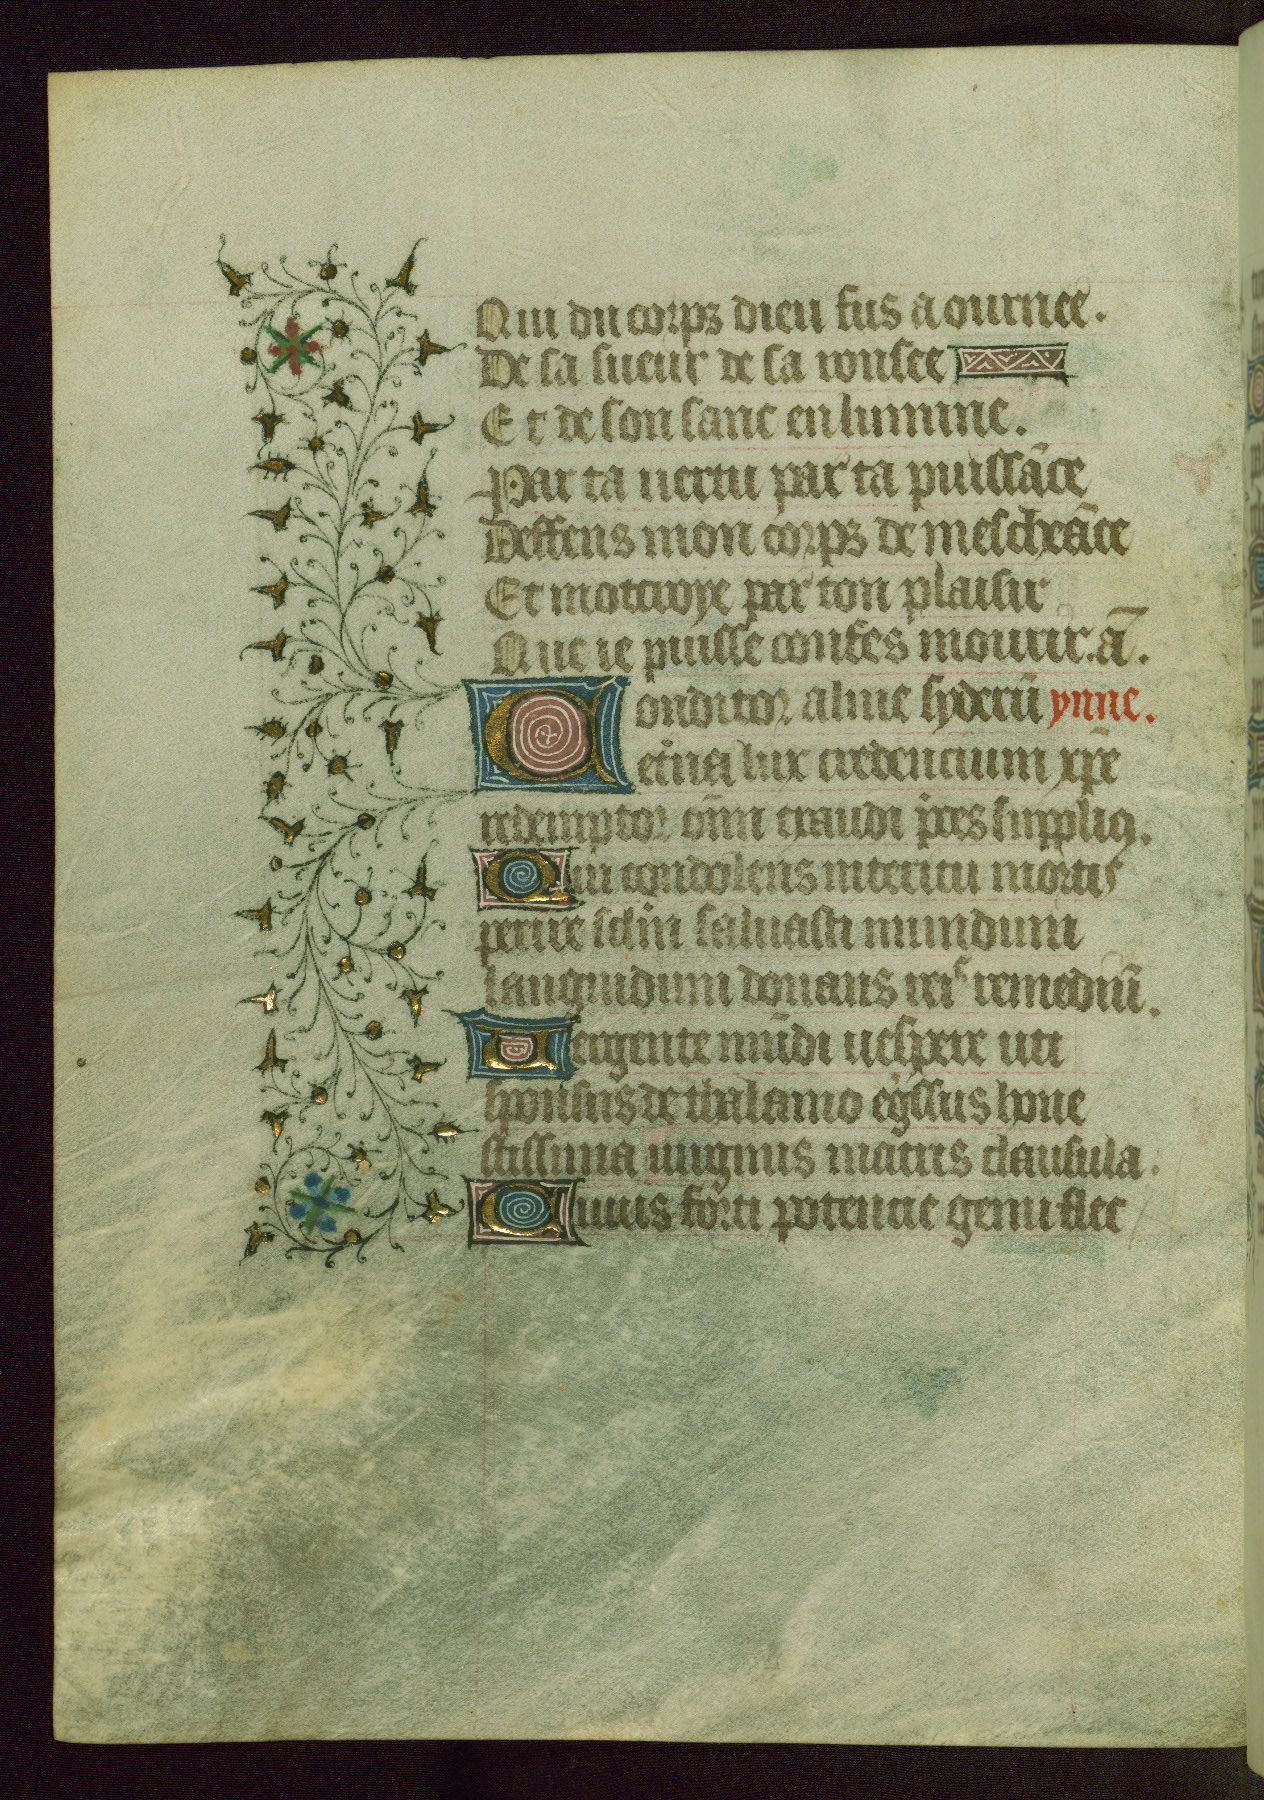 Qui du corps dieu fus aournee.
De sa sueur de sa rousee
Et de son sanc enlumine.
Par ta uertu par ta puissāce
Deffens mon corps de mescheāce
Et mottroye par ton plaisir
Que ie puisse confes mourir. ā.
Conditor alme syderū ynne.
etͥna lux credencium xpē
redemptor om̄ exaudi p̄ces supplicū.
Qui condolens interitu mortis
perire sclm̄ saluasti mundum
languidum donans reiˢ remediū.
Uergente mūdi uespere uti
sponsus de thalamo egͥssus hone
stissima uirginis matris clausula.
Cuius forti potencie genu flec